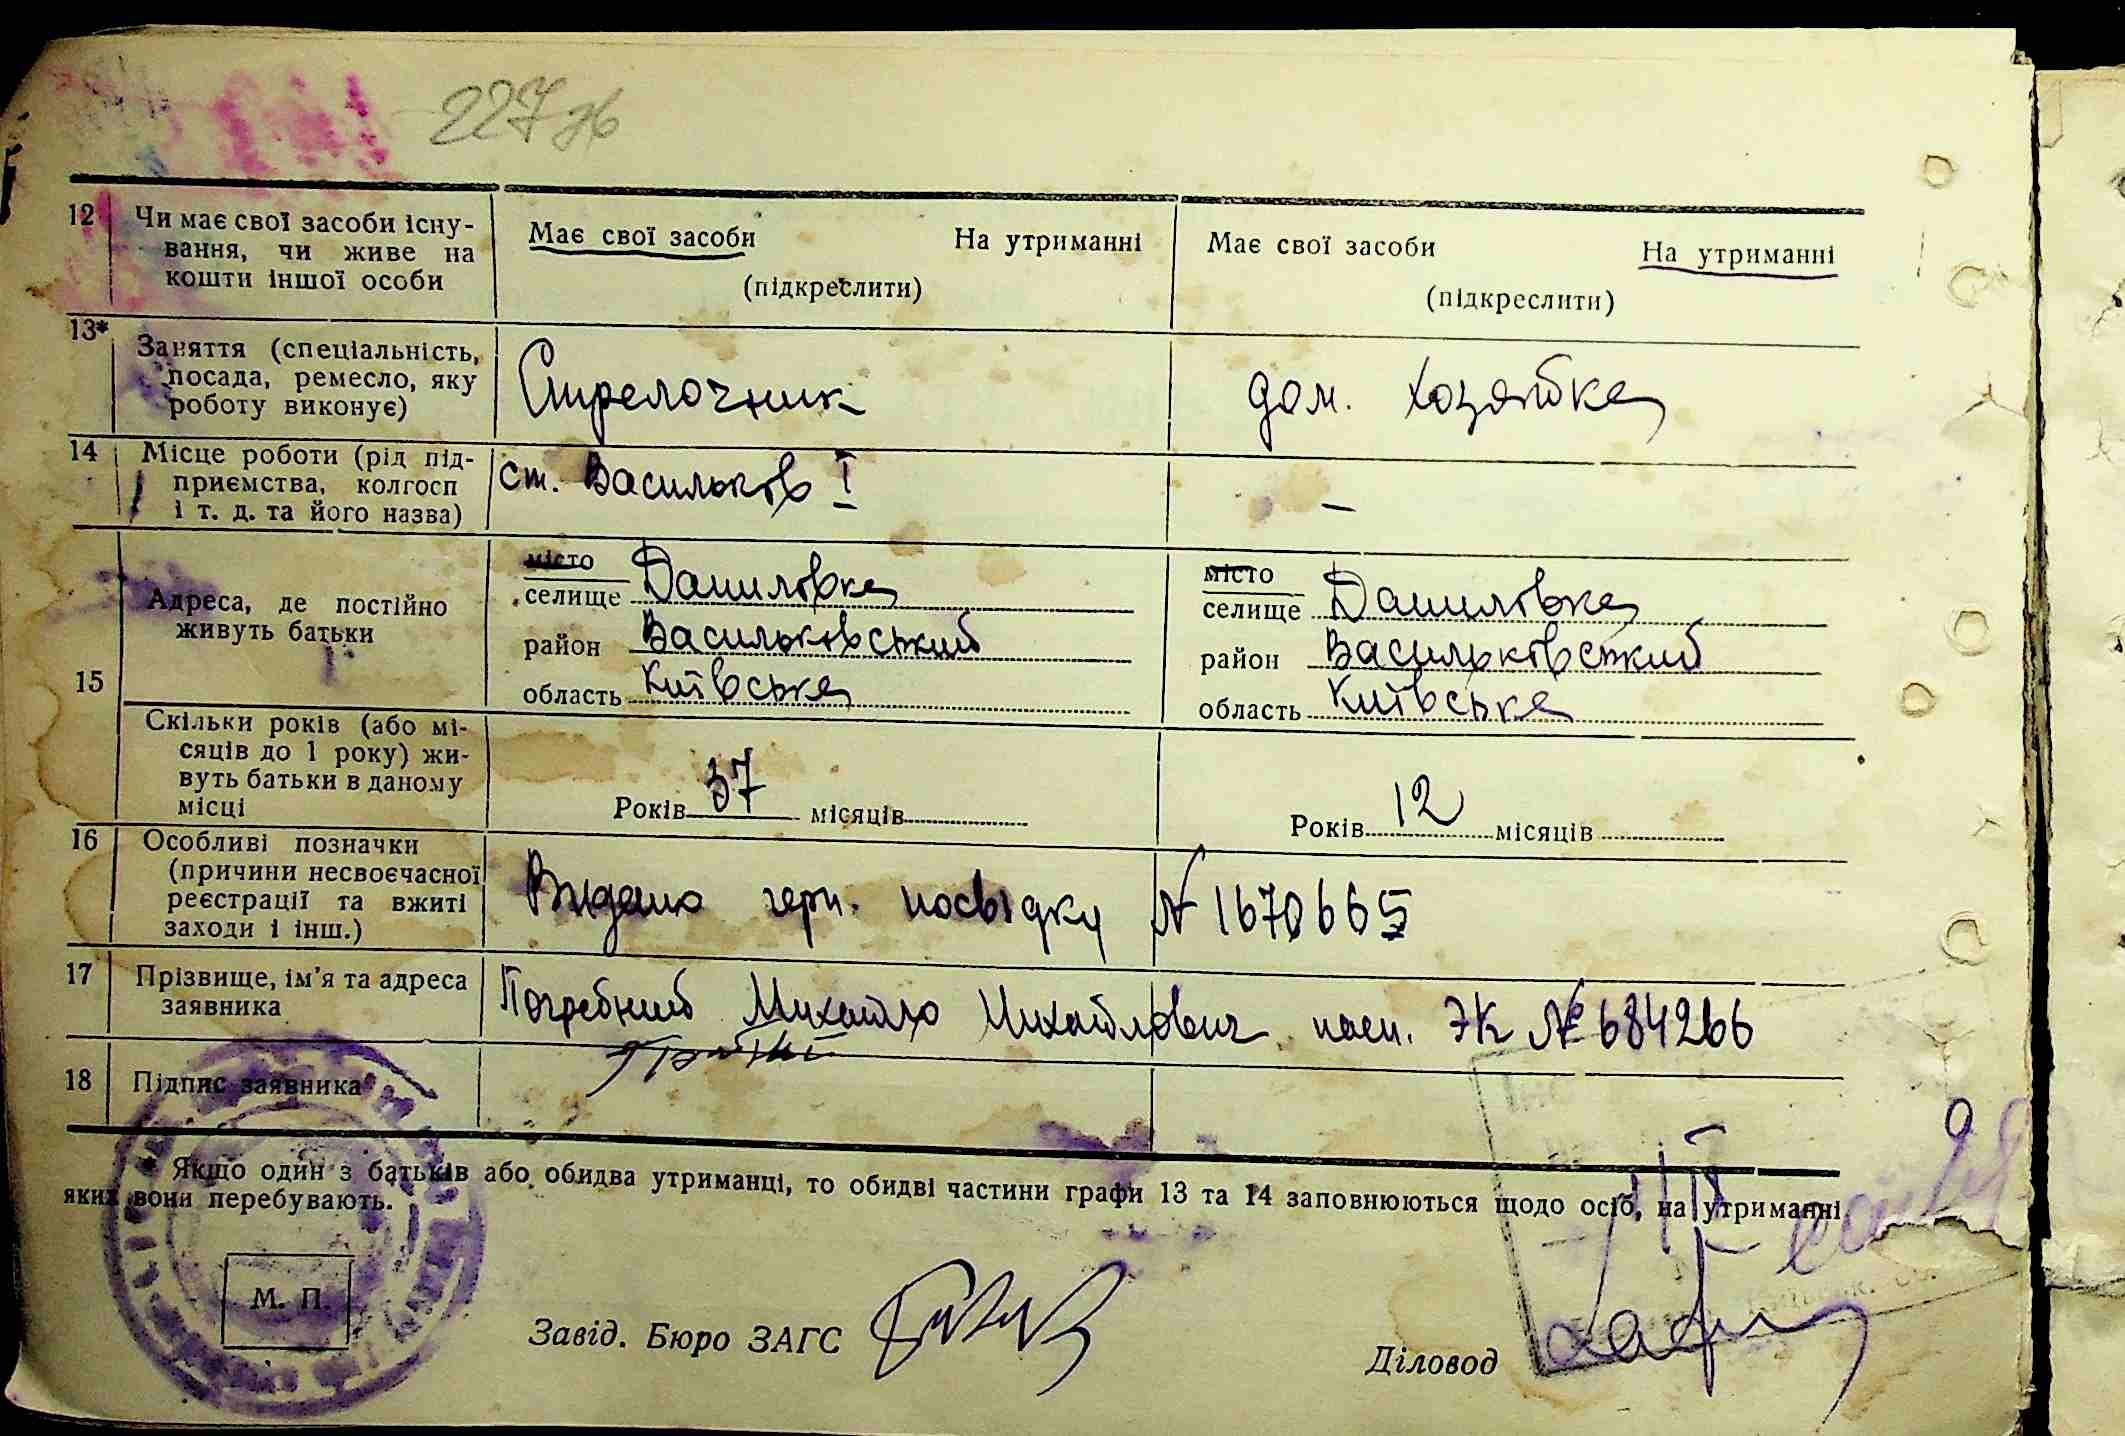 227 зв
12 Чи має свої засоби існу-
вання, чи живе на
кошти іншої особи
Має свої засоби На утриманні
(підкреслити)
Має свої засоби На утриманні
(підкреслити)
13* Заняття (спеціальність,
посада, ремесло, яку
роботу виконує)
Стрелочник
дом. хозяйка
14 Місце роботи (рід під-
приємства, колгосп
і т. д. та його назва)
ст. Васильків I
—
15 Адреса, де постійно
живуть батьки
місто
селище Данилівка
район Васильківський
область Київська
місто
селище Данилівка
район Васильківський
область Київська
Скільки років (або мі-
сяців до 1 року) жи-
вуть батьки в даному
місці
Років 37 місяців
Років 12 місяців
16 Особливі позначки
(причини несвоєчасної
реєстрації та вжиті
заходи і інш.)
Видано герп. посвідку № 1670665
17 Прізвище, ім'я та адреса
заявника
Погребний Михайло Михайлович пасп. ЭК № 684266
18 Підпис заявника
* Якщо один з батьків або обидва утриманці, то обидві частини графи 13 та 14 заповнюються щодо осіб, на утриманні
яких вони перебувають.
М. П.
Завід. Бюро ЗАГС
Діловод